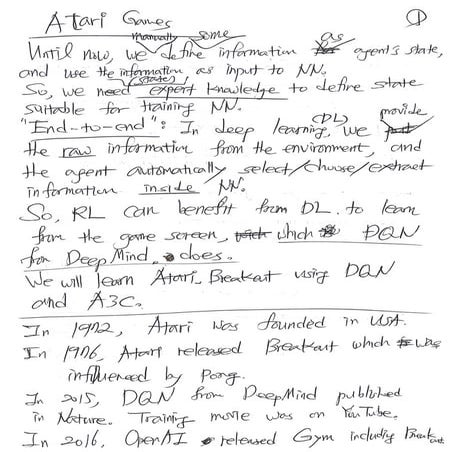 Atari Games ①
Until now, we manually define some information as agent's state,
and use the information (states) as input to NN.
So, we need expert knowledge to define state
suitable for training NN.
"End-to-end": In deep learning (DL), we provide
the raw information from the environment, and
the agent automatically select/choose/extract
information inside NN.
So, RL can benefit from DL to learn
from the game screen, which DQN
from DeepMind does.
We will learn Atari Breakout using DQN
and A3C.
In 1972, Atari was founded in USA.
In 1976, Atari released Breakout which was
influenced by Pong.
In 2015, DQN from DeepMind published
in Nature. Training movie was on YouTube.
In 2016, OpenAI released Gym including Breakout